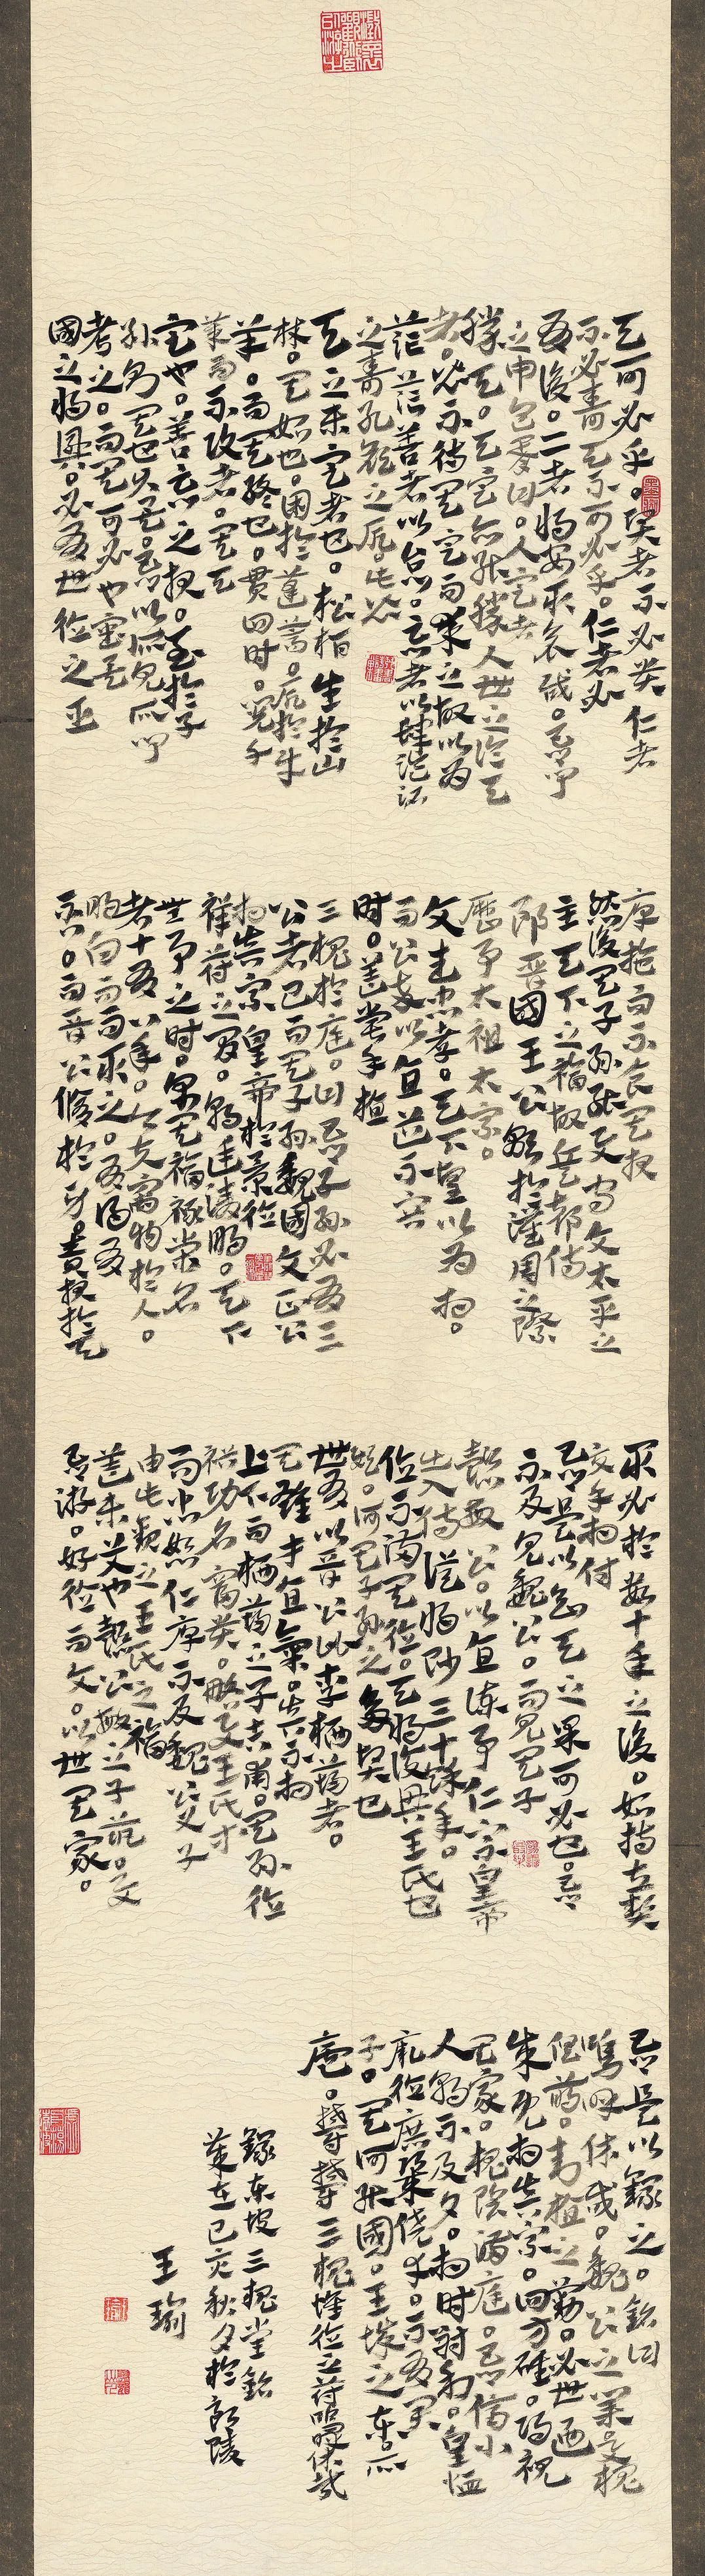 天可必乎。賢者不必貴仁者
不必壽天不可必乎。仁者必
有後。二者將安取衷哉。吾聞
之申包胥曰。人定者
勝天。天定亦能勝人世之論天
者。皆不待其定而求之故以為
茫茫善者以怠。惡者以肆盜跖
之壽孔顏之厄。此皆
天之未定者也。松柏生於山
林。其始也。困於蓬蒿。厄於牛
羊。而其終也。貫四時。閱千
歲而不改者。其天
定也。善惡之報。至於子
孫則其定也久矣。吾以所見所聞
考之。而其可必也審矣
國之將興。必有世德之臣
厚施而不食其報
然後其子孫能與守文太平之
主天下之福故兵部侍
郎晉國王公顯於漢周之際
歷事太祖太宗。
文武忠孝。天下望以為相。
而公卒以直道不容
時。蓋嘗手植
三槐於庭。曰吾子孫必有三
公者已而其子孫魏國文正公
相真宗皇帝於景德
祥符之間。朝廷清明。天下
無事之時。享其福祿榮名
者十有八年。今夫寓物於人。
明日而取之。有得有
否。而晉公修於身。責報於天
取必於數十年之後。如持左契
交手相付
吾是以知天之果可必也。吾
不及見魏公。而見其子
懿敏公。以直諫事仁宗皇帝
出入侍從將帥三十餘年。
位不滿其德。天將復興王氏也
歟。何其子孫之多賢也
世有以晉公比李栖筠者。
其雄才直氣。真不相
上下而栖筠之子吉甫。其孫德
裕功名富貴。略與王氏才
而忠恕仁厚不及魏公父子
由此觀之王氏之福
蓋未艾也懿敏公之子鞏。與
吾游。好德而文。以世其家。
吾是以錄之。銘曰
嗚呼休哉。魏公之業與槐
俱萌。封植之勤。必世乃
成既相真宗。四方砥平。歸視
其家。槐陰滿庭。吾儕小
人朝不及夕。相時射利。皇恤
厥德庶幾僥倖。不有君
子。其何能國。王城之東。所
廬。鬱鬱三槐惟德之符嗚呼休哉
錄東坡三槐堂銘
歲在己亥秋夕於
王瑜